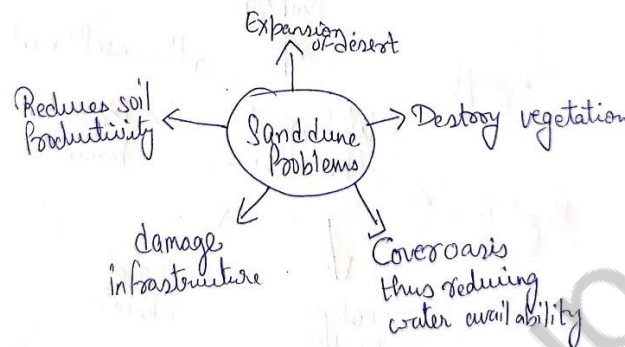 Expansion
of desert
Reduces soil
Productivity
Sanddune
Problems
Destroy vegetation
damage
infrastructure
Cover oasis
thus reducing
water availability